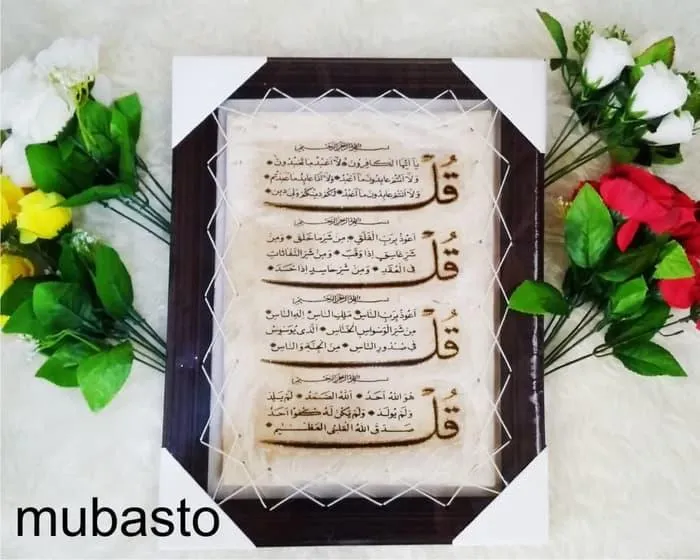 بسم الله الرحمن الرحيم
قُلْ
يا أيها الكافرون * لا أعبد ما تعبدون *
ولا أنتم عابدون ما أعبد * ولا أنا عابد ما عبدتم
ولا أنتم عابدون ما أعبد * لكم دينكم ولي دين *
بسم الله الرحمن الرحيم
قُلْ
أعوذ برب الفلق * من شر ما خلق * ومن
شر غاسق إذا وقب * ومن شر النفاثات
في العقد * ومن شر حاسد إذا حسد *
بسم الله الرحمن الرحيم
قُلْ
أعوذ برب الناس * ملك الناس * إله الناس
من شر الوسواس الخناس * الذي يوسوس
في صدور الناس * من الجنة والناس *
بسم الله الرحمن الرحيم
قُلْ
هو الله أحد * الله الصمد * لم يلد
ولم يولد * ولم يكن له كفوا أحد *
صدق الله العلي العظيم *
mubasto